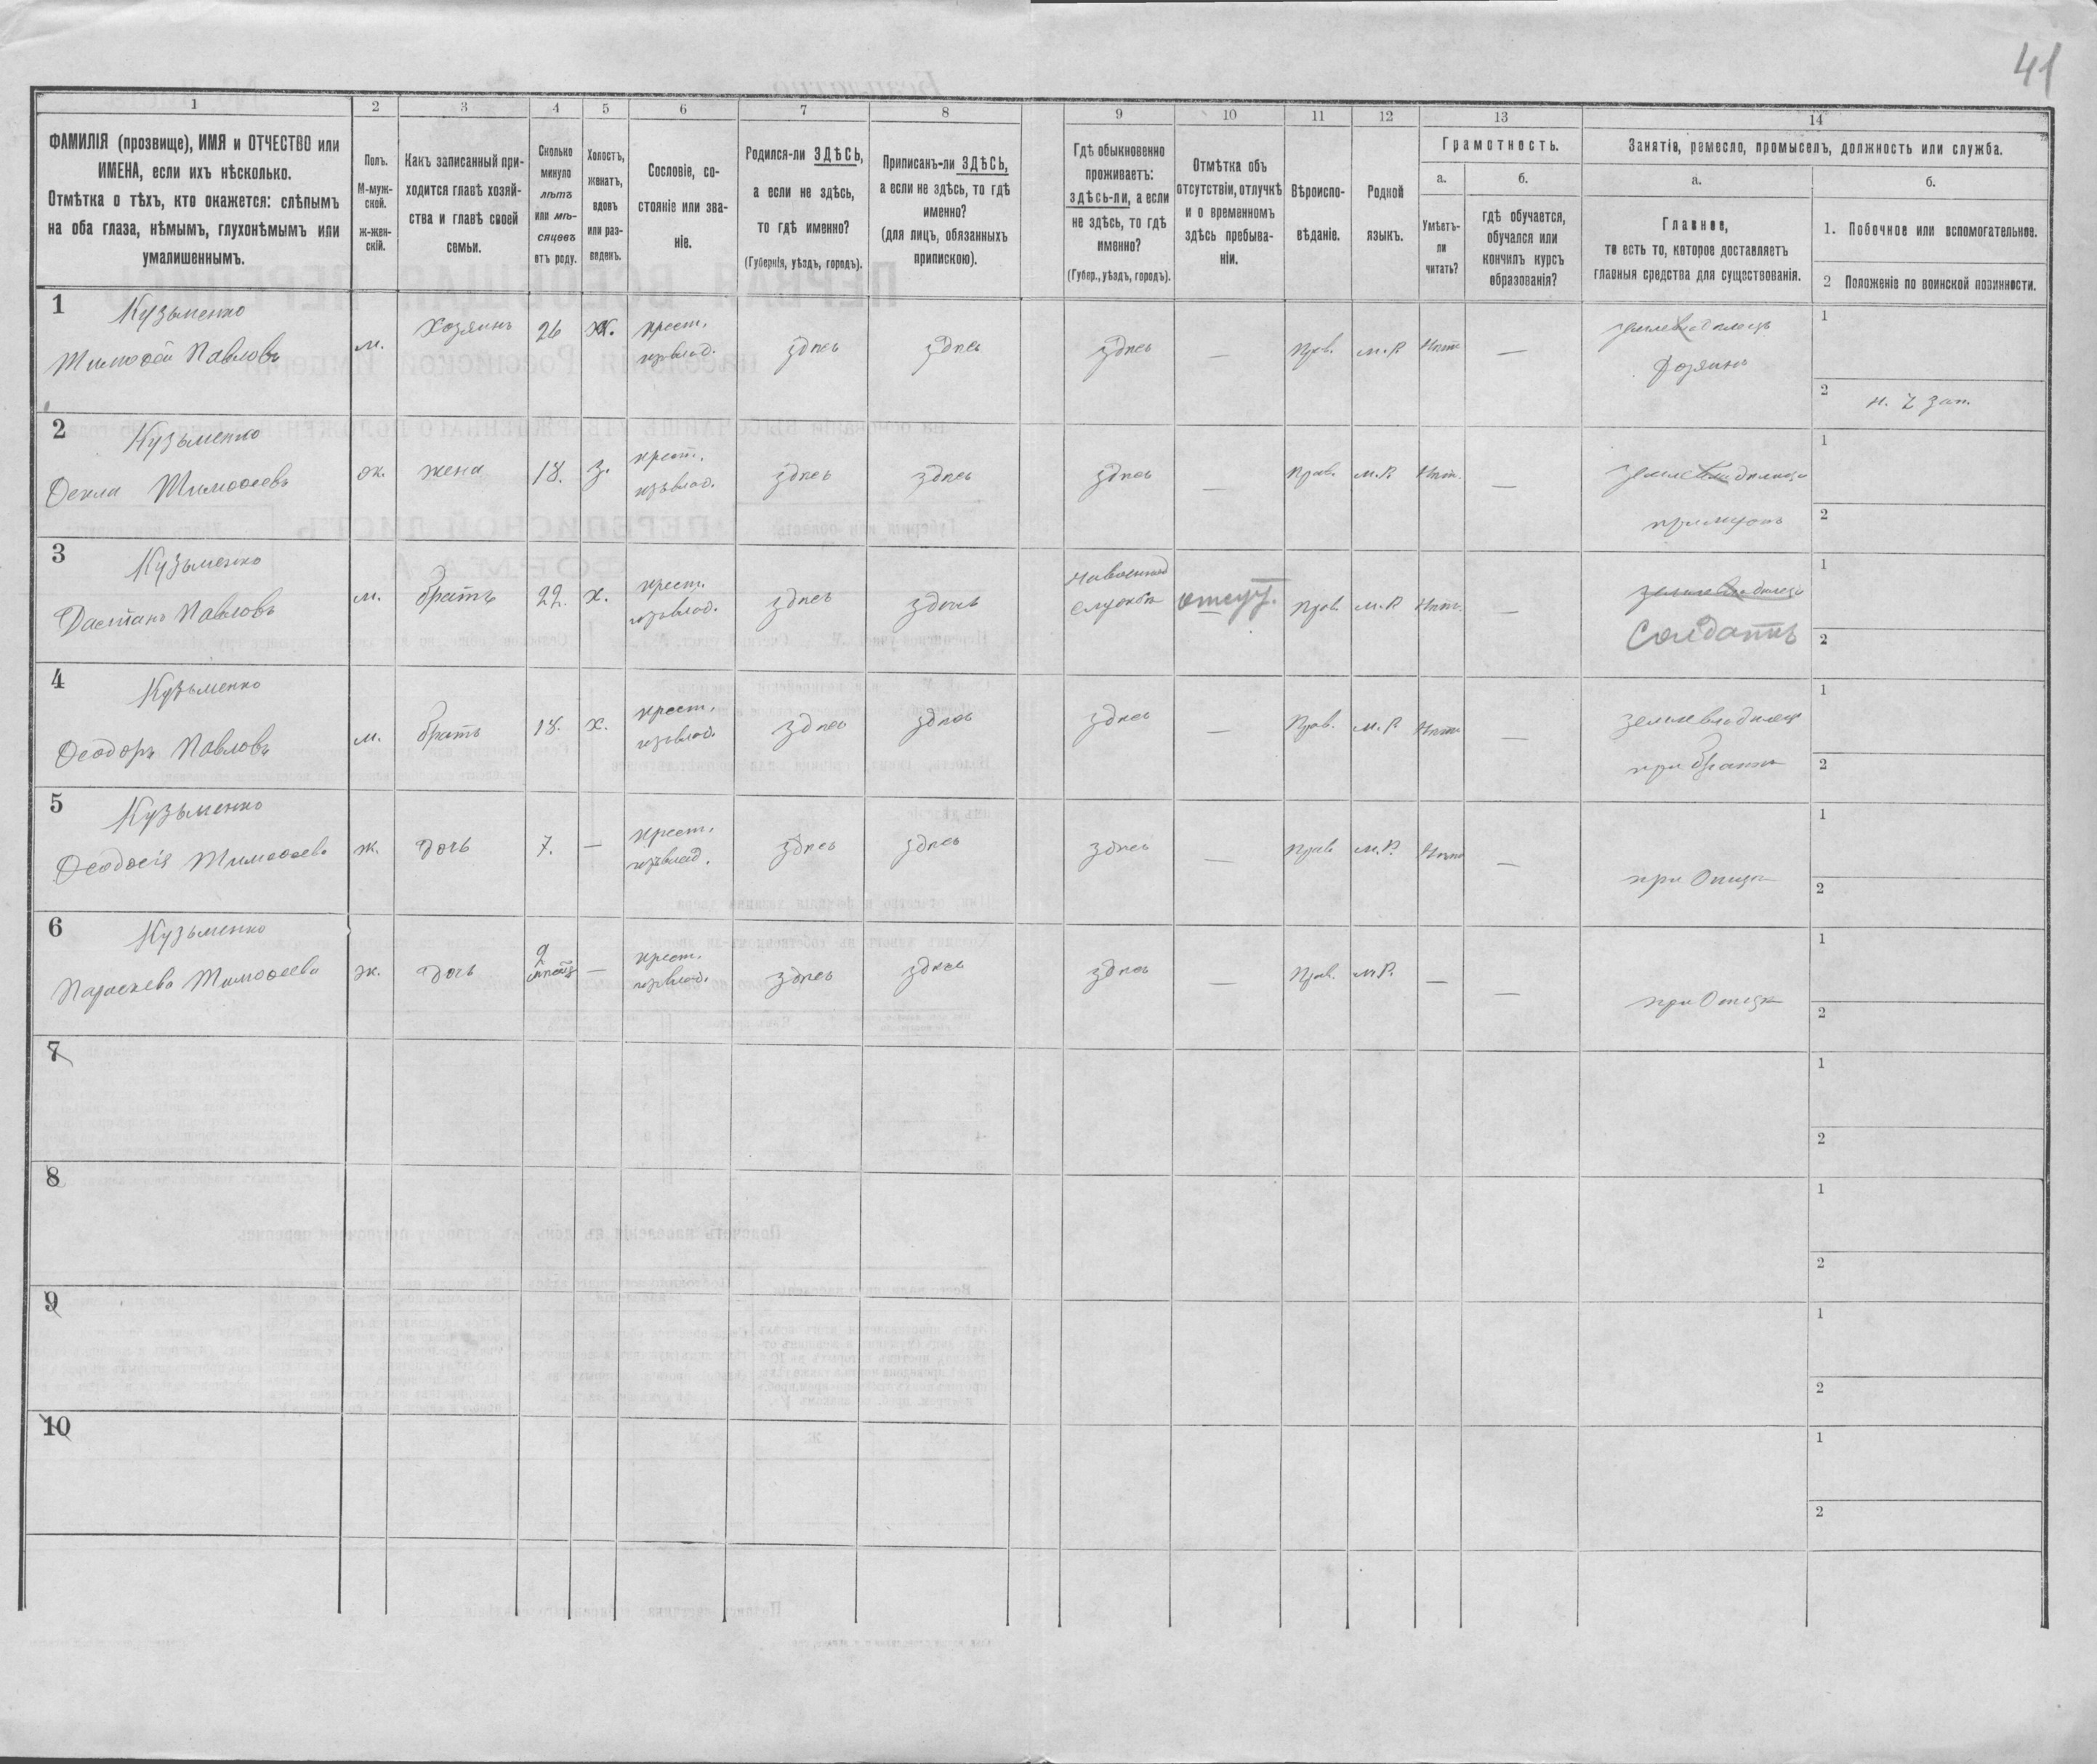 41
1 2 3 4 5 6 7 8 9 10 11 12 13 14
ФАМИЛІЯ (прозвище), ИМЯ и ОТЧЕСТВО или
ИМЕНА, если ихъ нѣсколько.
Отмѣтка о тѣхъ, кто окажется: слѣпымъ
на оба глаза, нѣмымъ, глухонѣмымъ или
умалишеннымъ.
Полъ.
М-муж-
ской.
ж-жен-
скій.
Какъ записанный при-
ходится главѣ хозяй-
ства и главѣ своей
семьи.
Сколько
минуло
лѣтъ
или мѣ-
сяцевъ
отъ роду.
Холостъ,
женатъ,
вдовъ
или раз-
веденъ.
Сословіе, со-
стояніе или зва-
ніе.
Родился-ли ЗДѢСЬ,
а если не здѣсь,
то гдѣ именно?
(Губернія, уѣздъ, городъ).
Приписанъ-ли ЗДѢСЬ,
а если не здѣсь, то гдѣ
именно?
(для лицъ, обязанныхъ
припискою).
Гдѣ обыкновенно
проживаетъ:
здѣсь-ли, а если
не здѣсь, то гдѣ
именно?
(Губер., уѣздъ, городъ).
Отмѣтка объ
отсутствіи, отлучкѣ
и о временномъ
здѣсь пребыва-
ніи.
Вѣроиспо-
вѣданіе.
Родной
языкъ.
Грамотность.
а.
Умѣетъ-
ли
читать?
б.
гдѣ обучается,
обучался или
кончилъ курсъ
образованія?
Занятіе, ремесло, промыселъ, должность или служба.
а.
Главное,
то есть то, которое доставляетъ
главныя средства для существованія.
б.
1. Побочное или вспомогательное.
2 Положеніе по воинской повинности.
1 Кузьменко
Тимофей Павловъ
м.
Хозяинъ
26
крест.
здѣсь
здѣсь
здѣсь
—
Прав.
м.Р
Нѣтъ
—
земледѣлецъ
Хозяинъ
1
2
2 Кузьменко
Ѳекла Тимоѳеевъ
ж.
жена
18.
з.
крест.
здѣсь
здѣсь
здѣсь
—
Прав.
м.Р
Нѣт.
—
при мужѣ
1
2
3 Кузьменко
Павловъ
м.
братъ
22.
х.
крест.
здѣсь
здѣсь
службѣ
отсут.
Прав
м.Р
Нѣт.
—
Солдатъ
1
2
4 Кузьменко
Ѳеодоръ Павловъ
м.
братъ
18.
х.
крест.
здѣсь
здѣсь
здѣсь
—
Прав.
м.Р
Нѣтъ
—
при братѣ
1
2
5 Кузьменко
Ѳеодосія Тимоѳеева
ж.
дочь
7.
—
крест.
здѣсь
здѣсь
здѣсь
—
Прав
м.Р.
Нѣтъ
—
при Отцѣ
1
2
6 Кузьменко
Параскева Тимоѳеева
ж.
дочь
—
крест.
здѣсь
здѣсь
здѣсь
—
Прав.
м.Р.
—
—
при Отцѣ
1
2
7
1
2
8
1
2
9
1
2
10
1
2